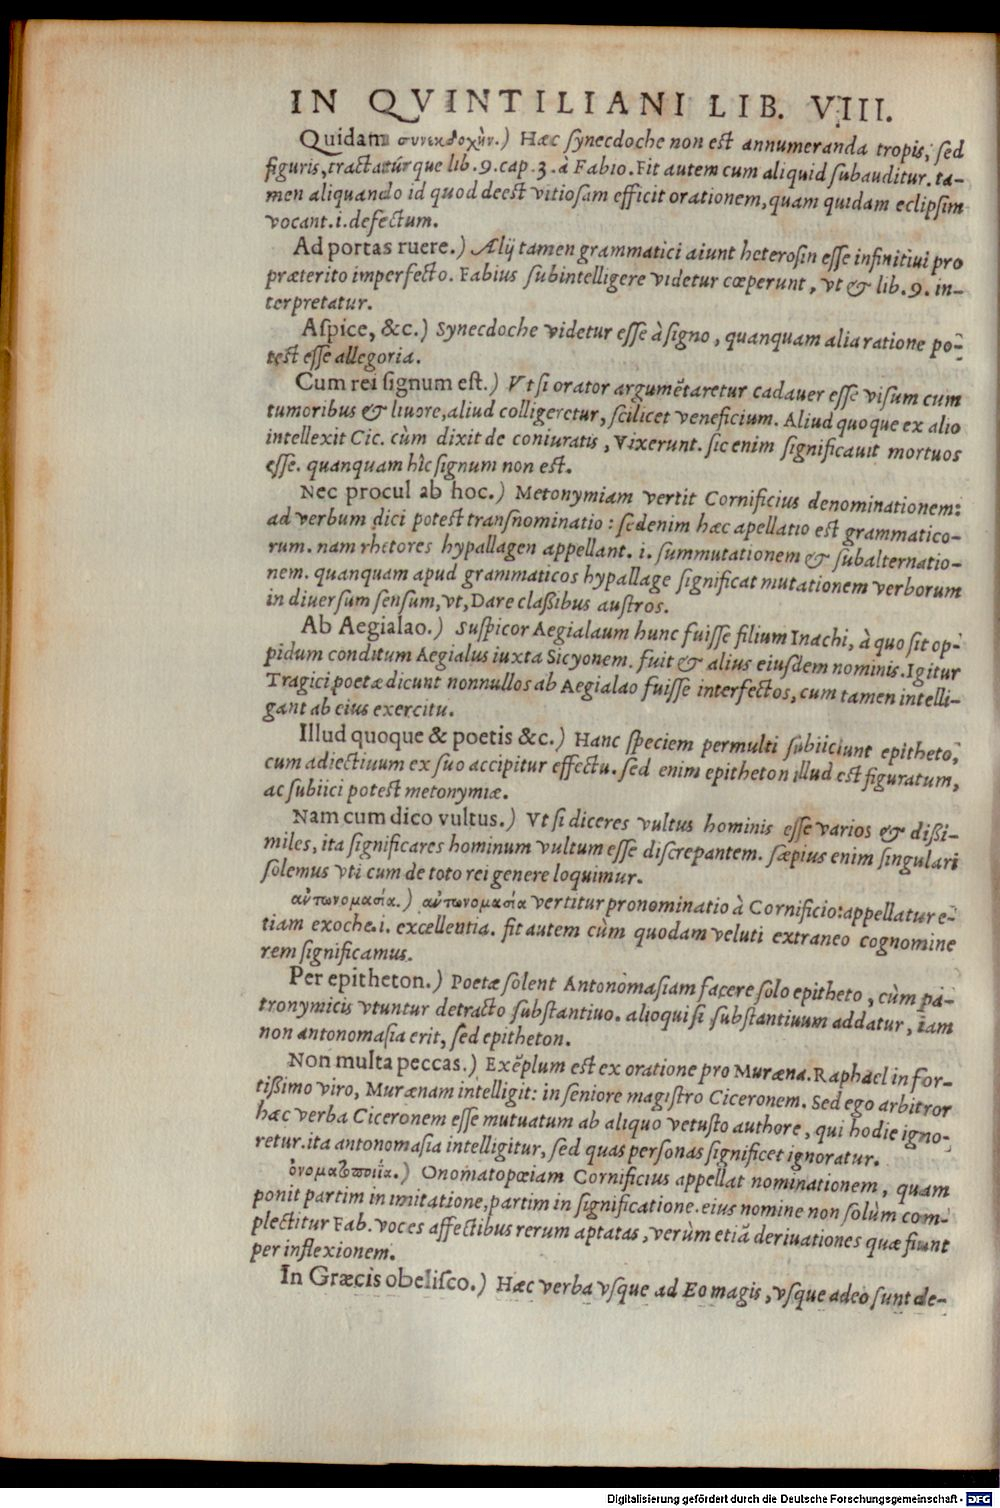 IN QVINTILIANI LIB. VIII.
Quidam συνεκδοχὴν.) Hæc ſynecdoche non est annumeranda tropis, ſed
figuris, tractatúrque lib. 9. cap. 3. à Fabio. Fit autem cum aliquid ſubauditur. ta-
men aliquando id quod deest vitioſam efficit orationem, quam quidam eclipſim
vocant. i. defectum.
Ad portas ruere.) Ælij tamen grammatici aiunt heteroſin eſſe infinitiui pro
præterito imperfecto. Fabius ſubintelligere videtur cœperunt, vt & lib. 9. in-
terpretatur.
Aſpice, &c.) Synecdoche videtur eſſe à ſigno, quanquam alia ratione po-
test eſſe allegoria.
Cum rei ſignum eſt.) Vt ſi orator argumẽtaretur cadauer eſſe viſum cum
tumoribus & liuore, aliud colligeretur, ſcilicet veneficium. Aliud quoque ex alio
intellexit Cic. cùm dixit de coniuratis, Vixerunt. ſic enim ſignificauit mortuos
eſſe. quanquam hîc ſignum non est.
Nec procul ab hoc.) Metonymiam vertit Cornificius denominationem:
ad verbum dici potest tranſnominatio: ſed enim hæc apellatio est grammatico-
rum. nam rhetores hypallagen appellant. i. ſummutationem & ſubalternatio-
nem. quanquam apud grammaticos hypallage ſignificat mutationem verborum
in diuerſum ſenſum, vt, Dare claßibus auſtros.
Ab Aegialao.) Suſpicor Aegialaum hunc fuiſſe filium Inachi, à quo ſit op-
pidum conditum Aegialus iuxta Sicyonem. fuit & alius eiuſdem nominis. Igitur
Tragici poetæ dicunt nonnullos ab Aegialao fuiſſe interfectos, cum tamen intelli-
gant ab eius exercitu.
Illud quoque & poetis &c.) Hanc ſpeciem permulti ſubiiciunt epitheto,
cum adiectiuum ex ſuo accipitur effectu. ſed enim epitheton illud est figuratum,
ac ſubiici potest metonymiæ.
Nam cum dico vultus.) Vt ſi diceres vultus hominis eſſe varios & dißi-
miles, ita ſignificares hominum vultum eſſe diſcrepantem. ſæpius enim ſingulari
ſolemus vti cum de toto rei genere loquimur.
αὐτωνομασία.) αὐτωνομασία vertitur pronominatio à Cornificio: appellatur e-
tiam exoche. i. excellentia. fit autem cùm quodam veluti extraneo cognomine
rem ſignificamus.
Per epitheton.) Poetæ ſolent Antonomaſiam facere ſolo epitheto, cùm pa-
tronymicis vtuntur detracto ſubſtantiuo. alioqui ſi ſubſtantiuum addatur, iam
non antonomaſia erit, ſed epitheton.
Non multa peccas.) Exẽplum est ex oratione pro Muræna. Raphael in for-
tißimo viro, Murænam intelligit: in ſeniore magiſtro Ciceronem. Sed ego arbitror
hæc verba Ciceronem eſſe mutuatum ab aliquo vetuſto authore, qui hodie igno-
retur. ita antonomaſia intelligitur, ſed quas perſonas ſignificet ignoratur.
ὀνοματοποιΐα.) Onomatopœiam Cornificius appellat nominationem, quam
ponit partim in imitatione, partim in ſignificatione. eius nomine non ſolùm com-
plectitur Fab. voces affectibus rerum aptatas, verùm etiã deriuationes quæ fiunt
per inflexionem.
In Græcis obeliſco.) Hæc verba vſque ad Eo magis, vſque adeo ſunt de-
Digitalisierung gefördert durch die Deutsche Forschungsgemeinschaft - DFG